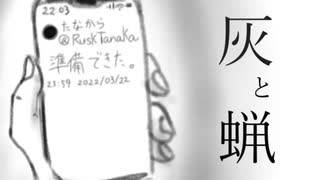 22:03
たなから
@RuskTanaka
準備できた。
21:59 2022/03/22
灰と蝋